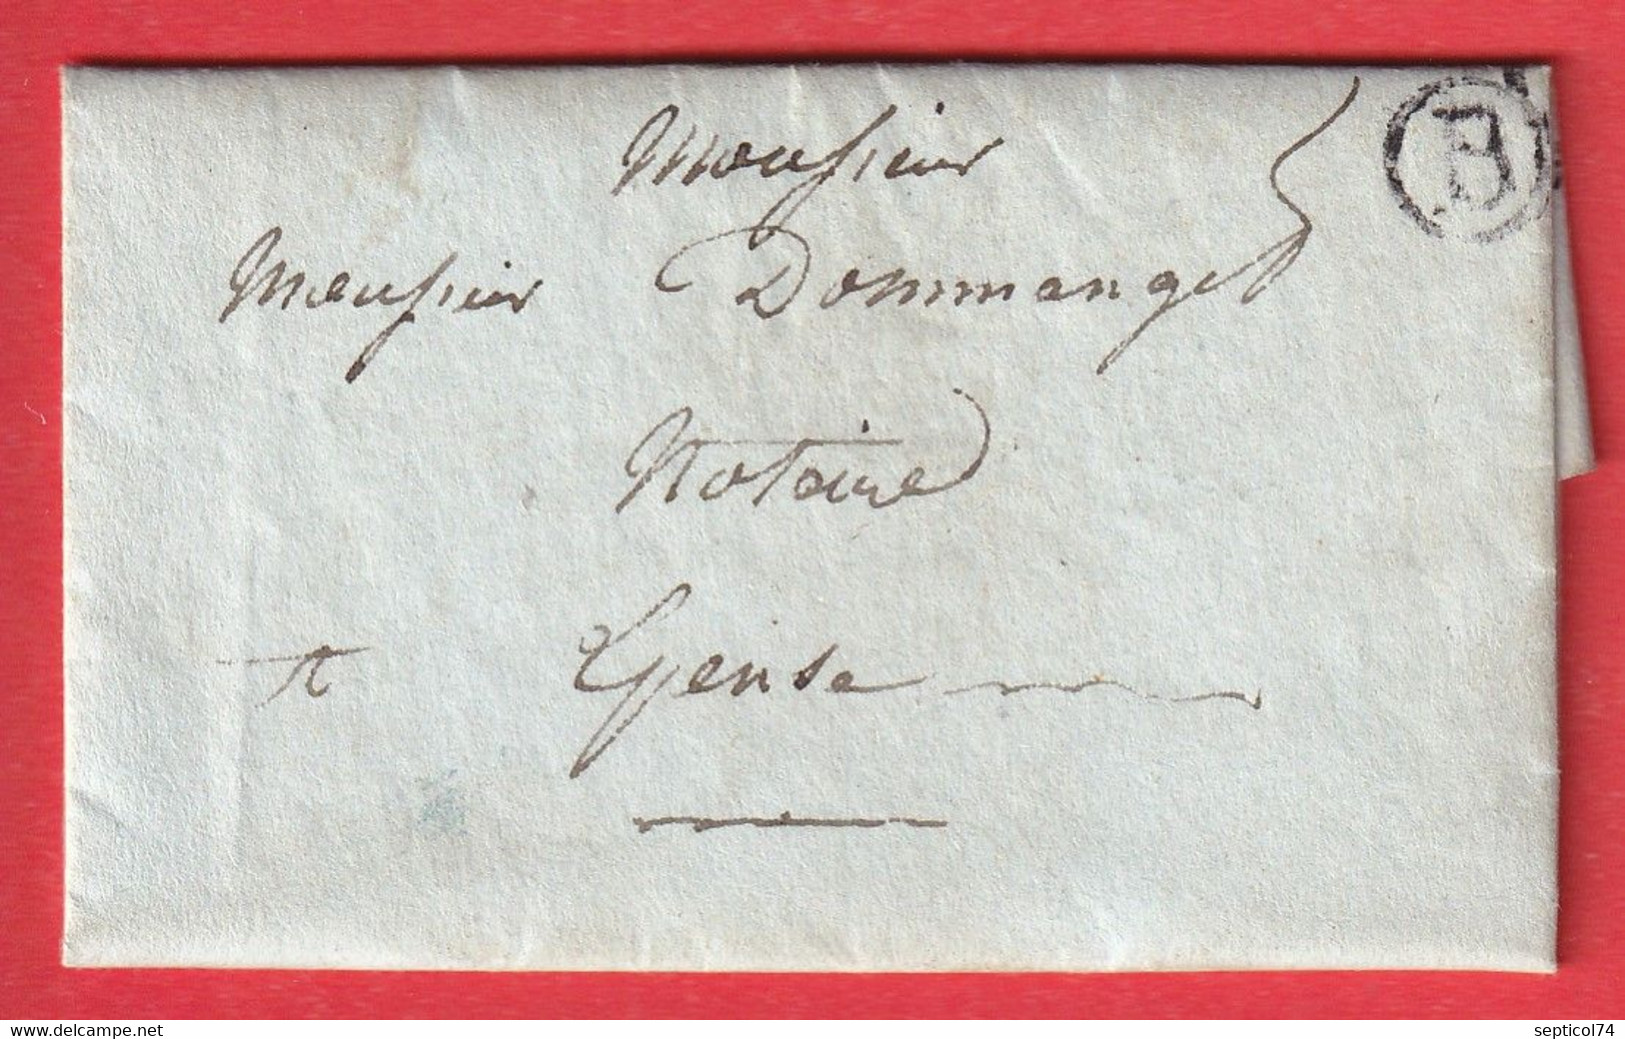 Monsieur
Monsieur Dommanget
Notaire
a Epense
B
www.delcampe.net
septicol74